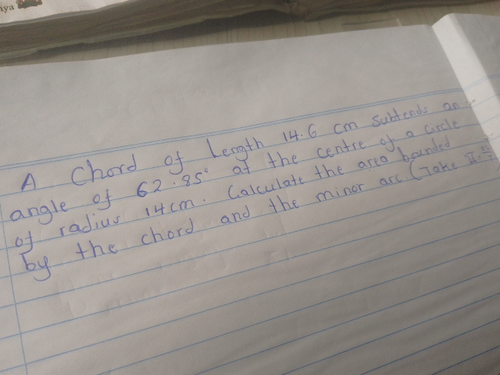 nya
A Chord of Length 14.6 cm subtends an
angle of 62.85° at the centre of a circle
of radius 14cm. Calculate the area bounded
by the chord and the minor arc (Take π: